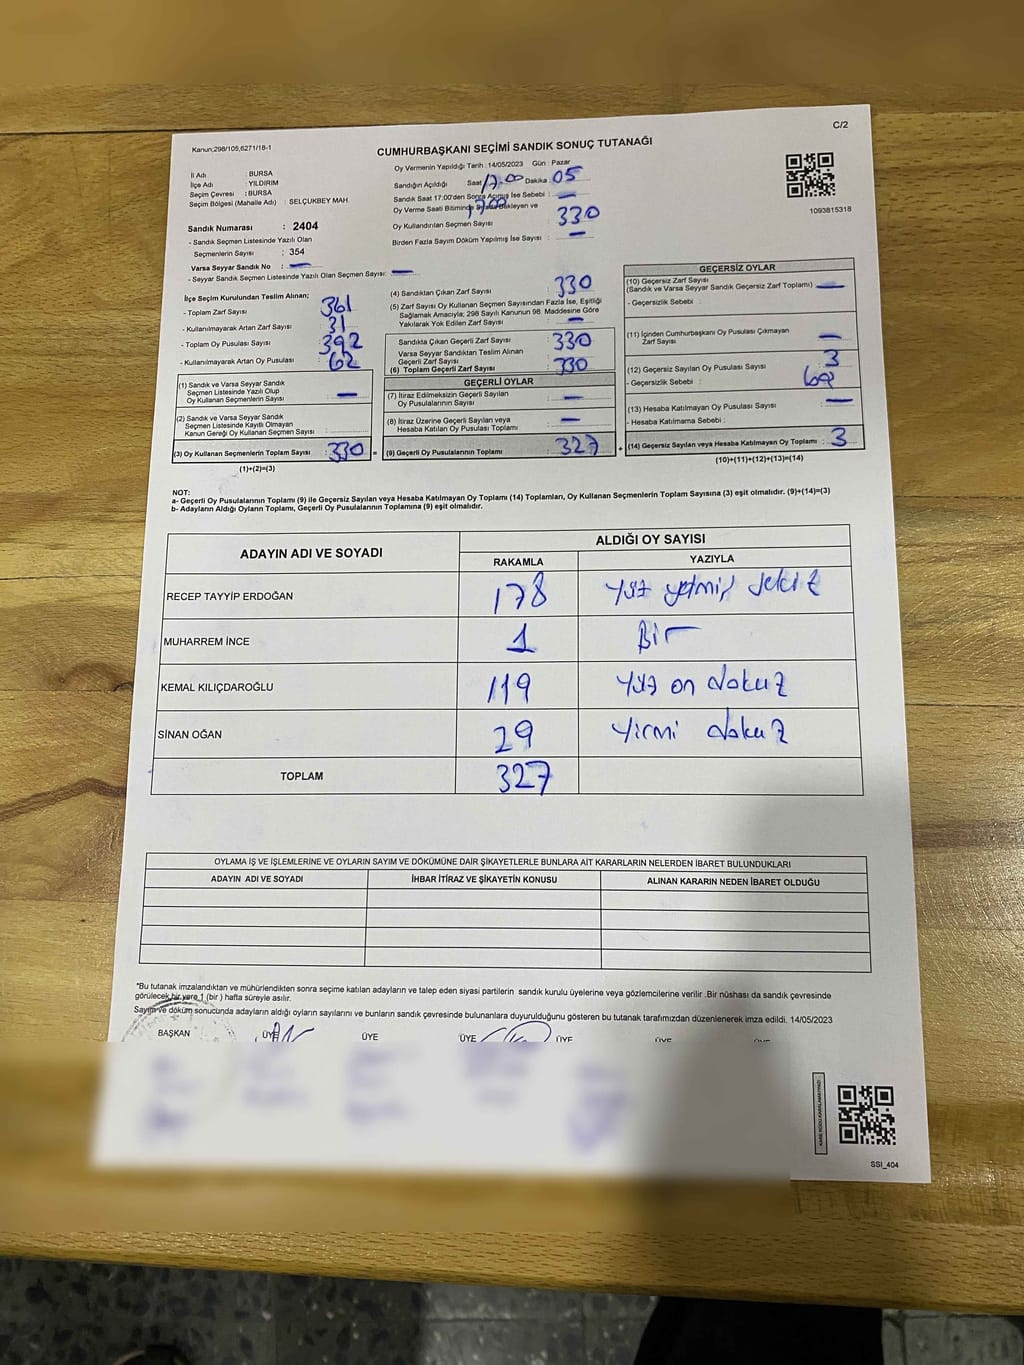 C/2
Kanun;298/105,6271/18-1
CUMHURBAŞKANI SEÇİMİ SANDIK SONUÇ TUTANAĞI
İl Adı : BURSA
İlçe Adı : YILDIRIM
Seçim Çevresi : BURSA
Seçim Bölgesi (Mahalle Adı) : SELÇUKBEY MAH.
Sandık Numarası : 2404
- Sandık Seçmen Listesinde Yazılı Olan
Seçmenlerin Sayısı : 354
Varsa Seyyar Sandık No : —
- Seyyar Sandık Seçmen Listesinde Yazılı Olan Seçmen Sayısı: —
Oy Vermenin Yapıldığı Tarih :14/05/2023 Gün : Pazar
Sandığın Açıldığı Saat 17.00 Dakika 05
Sandık Saat 17:00'den Sonra Açılmış İse Sebebi : —
Oy Verme Saati Bitiminde 17.00 Bekleyen ve
Oy Kullandırılan Seçmen Sayısı 330
Birden Fazla Sayım Döküm Yapılmış İse Sayısı : —
1093815318
İlçe Seçim Kurulundan Teslim Alınan;
- Toplam Zarf Sayısı 361
- Kullanılmayarak Artan Zarf Sayısı 31
- Toplam Oy Pusulası Sayısı 392
- Kullanılmayarak Artan Oy Pusulası 62
(1) Sandık ve Varsa Seyyar Sandık
Seçmen Listesinde Yazılı Olup
Oy Kullanan Seçmenlerin Sayısı : —
(2) Sandık ve Varsa Seyyar Sandık
Seçmen Listesinde Kayıtlı Olmayan
Kanun Gereği Oy Kullanan Seçmen Sayısı :
(3) Oy Kullanan Seçmenlerin Toplam Sayısı : 330 =
(1)+(2)=(3)
(4) Sandıktan Çıkan Zarf Sayısı 330
(5) Zarf Sayısı Oy Kullanan Seçmen Sayısından Fazla İse, Eşitliği
Sağlamak Amacıyla; 298 Sayılı Kanunun 98. Maddesine Göre
Yakılarak Yok Edilen Zarf Sayısı : —
Sandıkta Çıkan Geçerli Zarf Sayısı : 330
Varsa Seyyar Sandıktan Teslim Alınan
Geçerli Zarf Sayısı :
(6) Toplam Geçerli Zarf Sayısı : 330
GEÇERLİ OYLAR
(7) İtiraz Edilmeksizin Geçerli Sayılan
Oy Pusulalarının Sayısı : —
(8) İtiraz Üzerine Geçerli Sayılan veya
Hesaba Katılan Oy Pusulası Toplamı : —
(9) Geçerli Oy Pusulalarının Toplamı : 327 +
GEÇERSİZ OYLAR
(10) Geçersiz Zarf Sayısı
(Sandık ve Varsa Seyyar Sandık Geçersiz Zarf Toplamı) : —
- Geçersizlik Sebebi :
(11) İçinden Cumhurbaşkanı Oy Pusulası Çıkmayan
Zarf Sayısı : —
(12) Geçersiz Sayılan Oy Pusulası Sayısı : 3
- Geçersizlik Sebebi :
(13) Hesaba Katılmayan Oy Pusulası Sayısı : —
- Hesaba Katılmama Sebebi :
(14) Geçersiz Sayılan veya Hesaba Katılmayan Oy Toplamı : 3
(10)+(11)+(12)+(13)=(14)
NOT:
a- Geçerli Oy Pusulalarının Toplamı (9) ile Geçersiz Sayılan veya Hesaba Katılmayan Oy Toplamı (14) Toplamları, Oy Kullanan Seçmenlerin Toplam Sayısına (3) eşit olmalıdır. (9)+(14)=(3)
b- Adayların Aldığı Oyların Toplamı, Geçerli Oy Pusulalarının Toplamına (9) eşit olmalıdır.
ADAYIN ADI VE SOYADI
ALDIĞI OY SAYISI
RAKAMLA YAZIYLA
RECEP TAYYİP ERDOĞAN 178 Yüz yetmiş sekiz
MUHARREM İNCE 1 Bir
KEMAL KILIÇDAROĞLU 119 Yüz on dokuz
SİNAN OĞAN 29 Yirmi dokuz
TOPLAM 327
OYLAMA İŞ VE İŞLEMLERİNE VE OYLARIN SAYIM VE DÖKÜMÜNE DAİR ŞİKAYETLERLE BUNLARA AİT KARARLARIN NELERDEN İBARET BULUNDUKLARI
ADAYIN ADI VE SOYADI İHBAR İTİRAZ VE ŞİKAYETİN KONUSU ALINAN KARARIN NEDEN İBARET OLDUĞU
*Bu tutanak imzalandıktan ve mühürlendikten sonra seçime katılan adayların ve talep eden siyasi partilerin sandık kurulu üyelerine veya gözlemcilerine verilir .Bir nüshası da sandık çevresinde
görülecek bir yere 1 (bir ) hafta süreyle asılır.
Sayım ve döküm sonucunda adayların aldığı oyların sayılarını ve bunların sandık çevresinde bulunanlara duyurulduğunu gösteren bu tutanak tarafımızdan düzenlenerek imza edildi. 14/05/2023
BAŞKAN ÜYE ÜYE ÜYE ÜYE
SSI_404